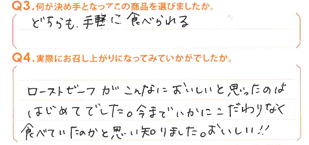 Q3.何が決め手となってこの商品を選びましたか。
どちらも、手軽に食べられる
Q4.実際にお召し上がりになってみていかがでしたか。
ローストビーフがこんなにおいしいと思ったのは
はじめてでした。今までいかにこだわりなく
食べていたのかと思い知りました。おいしい!!